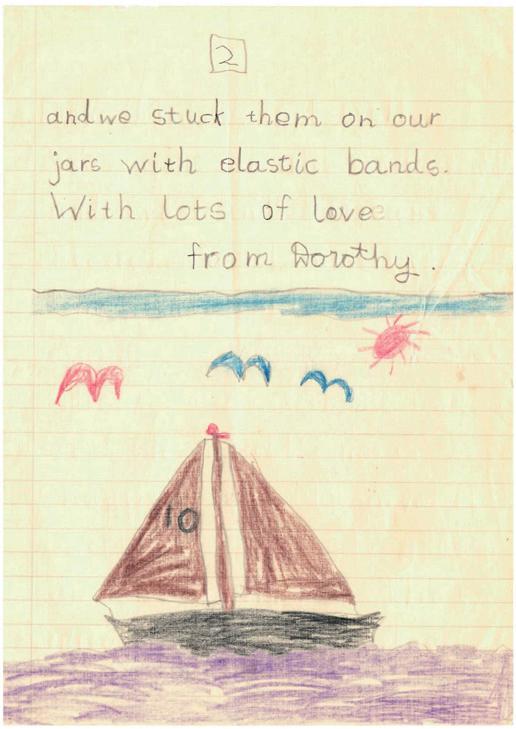 2
and we stuck them on our
jars with elastic bands.
With lots of love
from Dorothy.
10